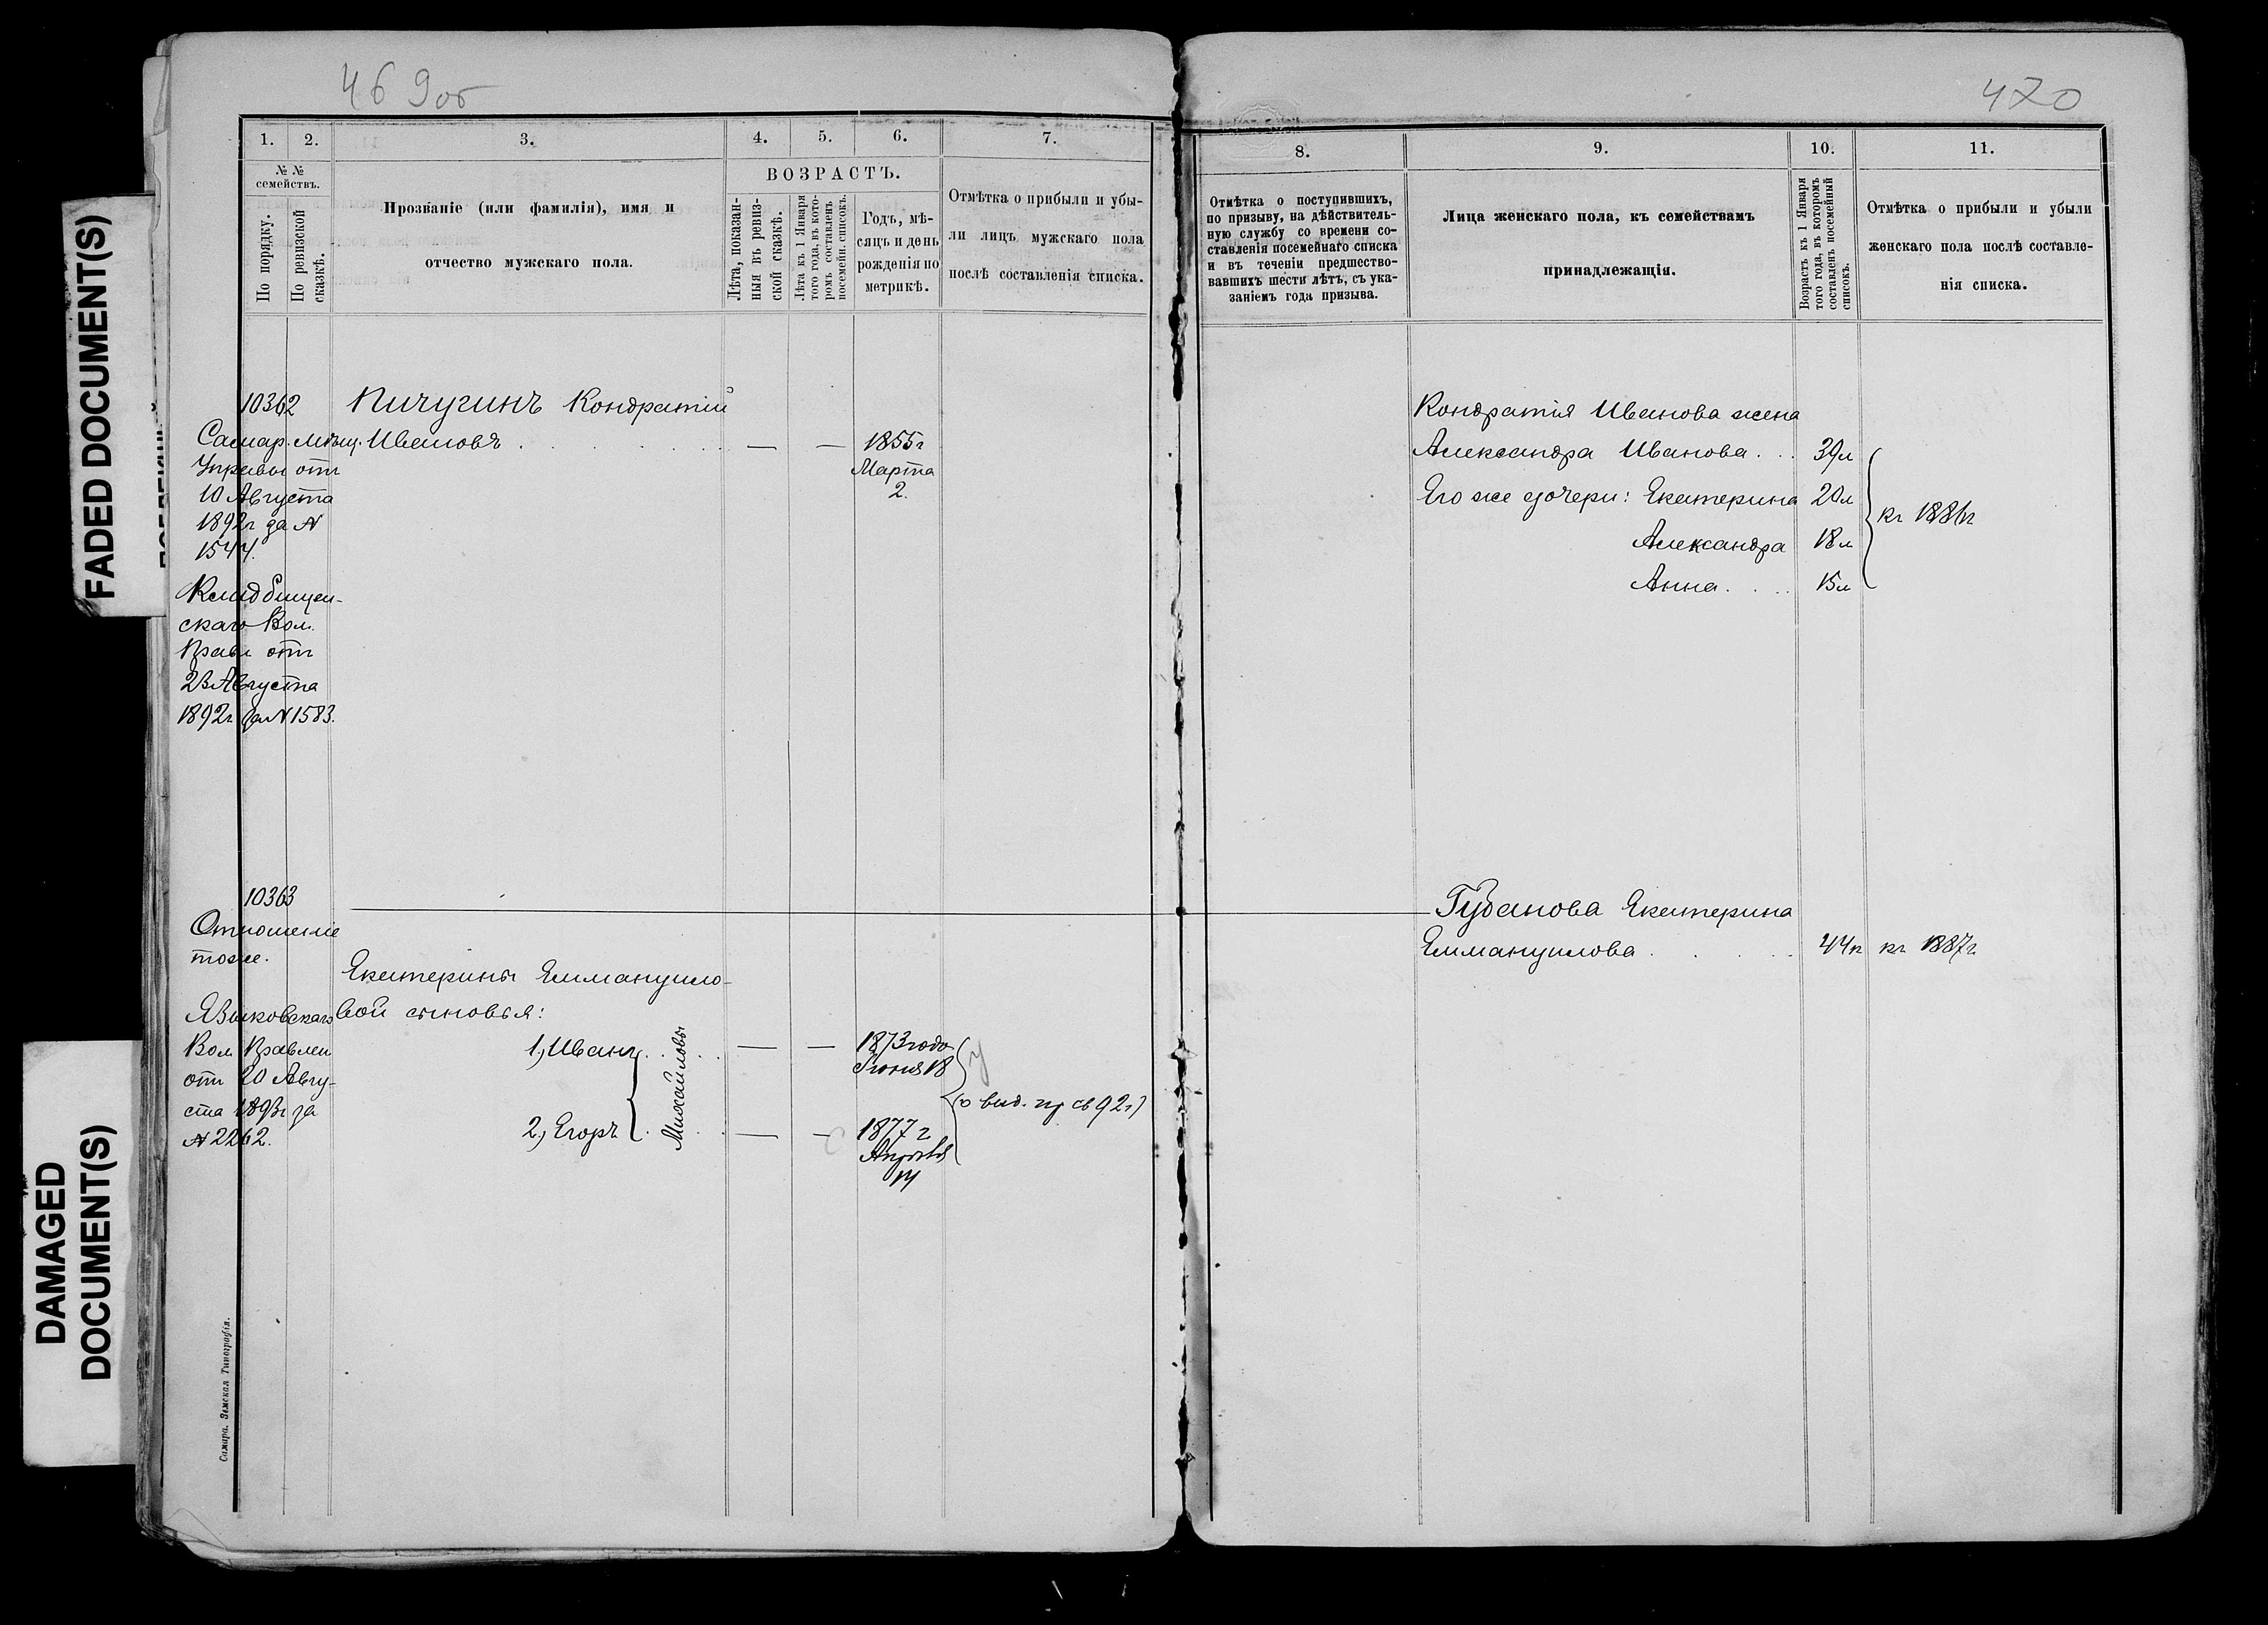 469об
1.
2.
3.
4.
5.
6.
7.
№ №
семействъ.
По порядку.
По ревизской сказкѣ.
Прозваніе (или фамилія), имя и
отчество мужскаго пола.
ВОЗРАСТЪ.
Лѣта, показан-
ныя въ ревиз-
ской сказкѣ.
Лѣта къ 1 Января
того года, въ кото-
ромъ составленъ
посемейн. списокъ.
Годъ, мѣ-
сяцъ и день
рожденія по
метрикѣ.
Отмѣтка о прибыли и убы-
ли лицъ мужскаго пола
послѣ составленія списка.
10362
Самар. мѣщ.
Управы отъ
10 Августа
1892г за №
1544.
Кладбищен-
скаго Вол.
Правл отъ
23 Августа
1892г за №1583.
Пичугинъ Кондратій
Ивановъ
1855г
Марта
2.
10363
Отношеніе
тоже.
Языковскаго
Вол Правлен
отъ 20 Авгу-
ста 1893г за
№ 2262.
Екатерины Еммануило-
вой сыновья:
1, Иванъ
2, Егоръ
Михайловы
1873 года
Іюня 18
1877 г
Апрѣля
14
Самара. Земская Типографія.
FADED DOCUMENT(S)
DAMAGED
DOCUMENT(S)
470
8.
9.
10.
11.
Отмѣтка о поступившихъ,
по призыву, на дѣйствитель-
ную службу со времени со-
ставленія посемейнаго списка
и въ теченіи предшество-
вавшихъ шести лѣтъ, съ ука-
заніемъ года призыва.
Лица женскаго пола, къ семействамъ
принадлежащія.
Возрастъ къ 1 Января
того года, въ которомъ
составленъ посемейный
списокъ.
Отмѣтка о прибыли и убыли
женскаго пола послѣ составле-
нія списка.
Кондратія Иванова жена
Александра Иванова 39л
Его же дочери: Екатерина 20л
къ 1886г
Александра 18л
Анна 15л
Губанова Екатерина
Еммануилова 44л къ 1887г